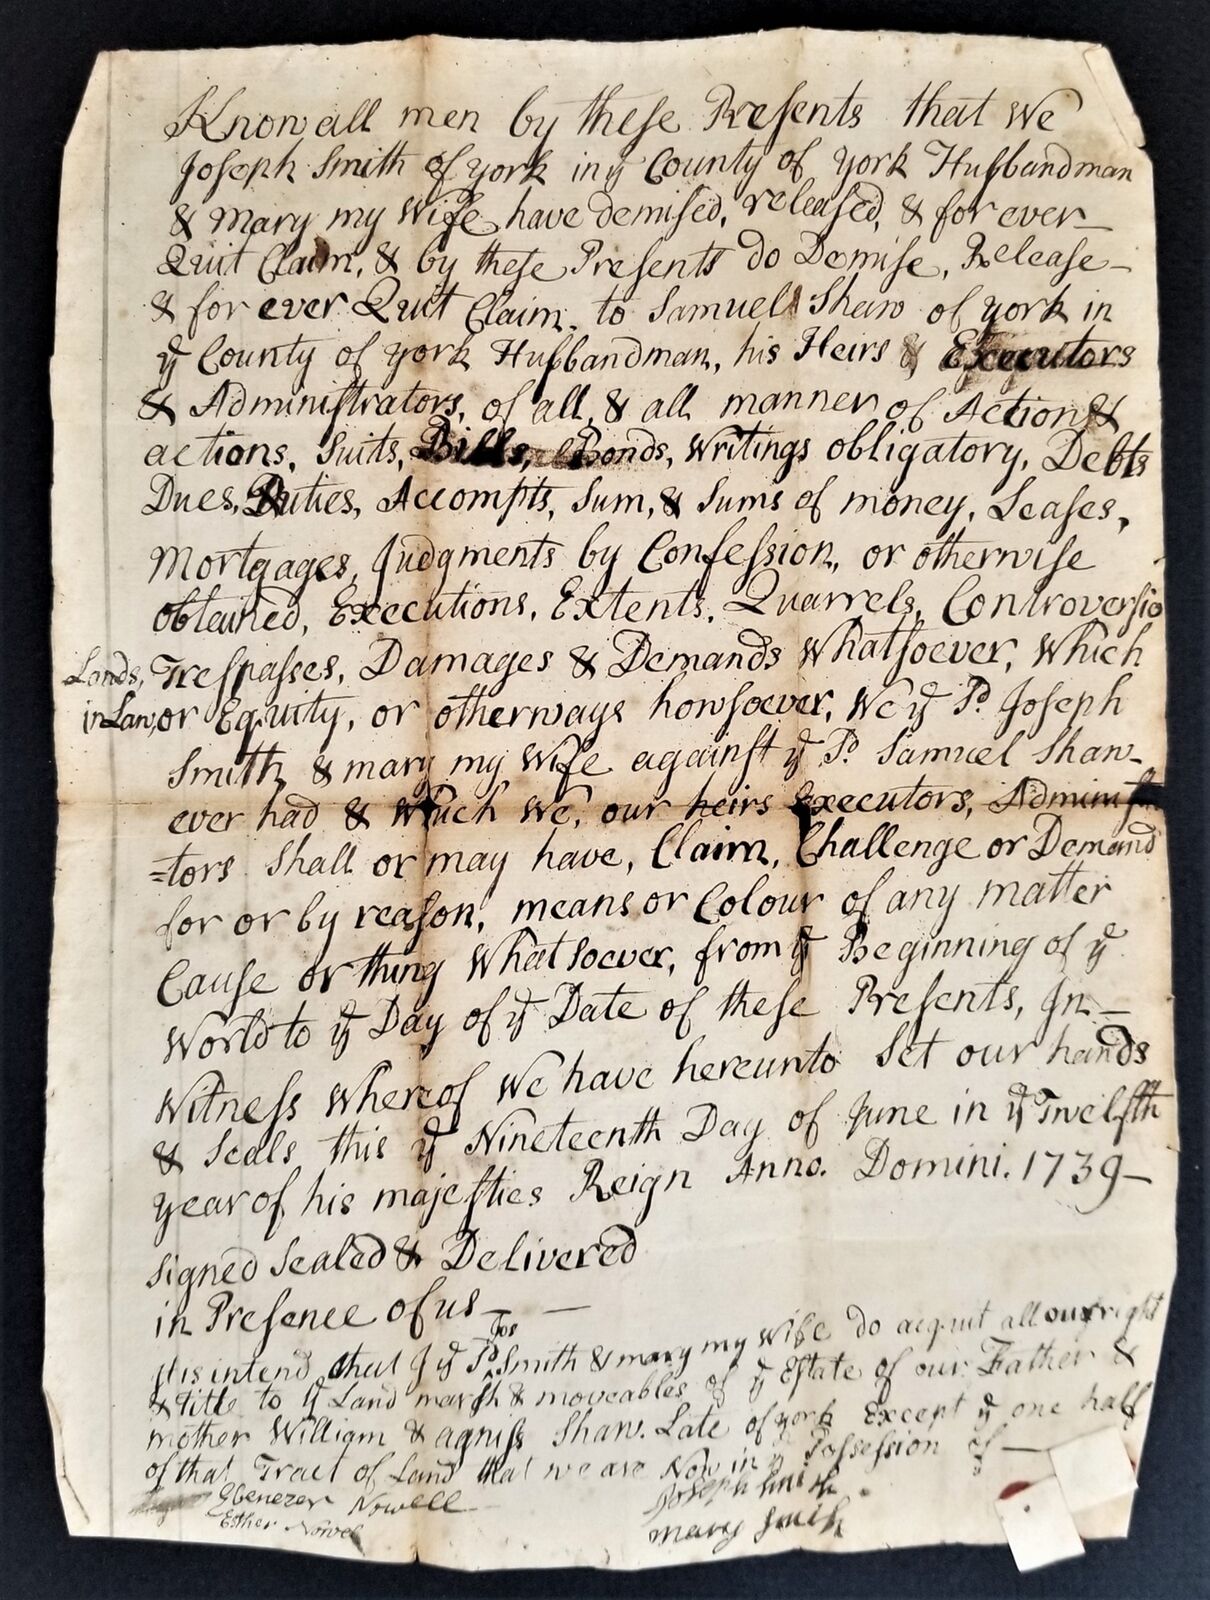 Know all men by these Presents that We
Joseph Smith of york in ye County of york Husbandman
& Mary my Wife have demised, released, & for ever
Quit Claim, & by these Presents do Demise, Release
& for ever Quit Claim to Samuel Shaw of york in
ye County of york Husbandman, his Heirs & Executors
& Administrators, of all, & all manner of Action &
actions, Suits, Bills, Bonds, Writings obligatory, Debts
Dues, Duties, Accompts, Sum, & Sums of money, Leases,
Mortgages, Judgments by Confession, or otherwise
obtained, Executions, Extents, Quarrels, Controversie
Lands, Trespasses, Damages & Demands Whatsoever, Which
in Law, or Equity, or otherways howsoever, We ye sd. Joseph
Smith & mary my Wife against ye sd. Samuel Shaw
ever had & Which We, our heirs Executors, Administra
=tors Shall or may have, Claim, Challenge or Demand
for or by reason, means or Colour of any matter
Cause or thing Whatsoever, from ye Beginning of ye
World to ye Day of ye Date of these Presents, In
Witness Whereof We have hereunto Set our hands
& Seals this ye Nineteenth Day of June in ye Twelfth
year of his majesties Reign Anno. Domini. 1739
Signed Sealed & Delivered
in Presence of us
Jos
It is intend that I ye sd. ^ Smith & mary my wife do acquit all our right
& title to ye Land marsh & moveables of ye Estate of our Father &
mother William & agniss Shaw Late of york Except ye one half
of that Tract of Land that we are Now in ye Possession of
Ebenezer Nowell Joseph Smith
Esther Nowel Mary Smith